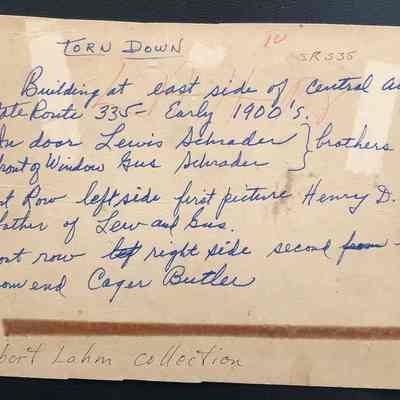 TORN DOWN
10
SR 335
Building at east side of Central A
ate Route 335 - Early 1900's.
In door Lewis Schrader } brothers
front of Window Gus Schrader
t Row left side first picture Henry D.
father of Lew and Gus.
ont row left right side second from -
om end Cager Butler
bert Lahm collection